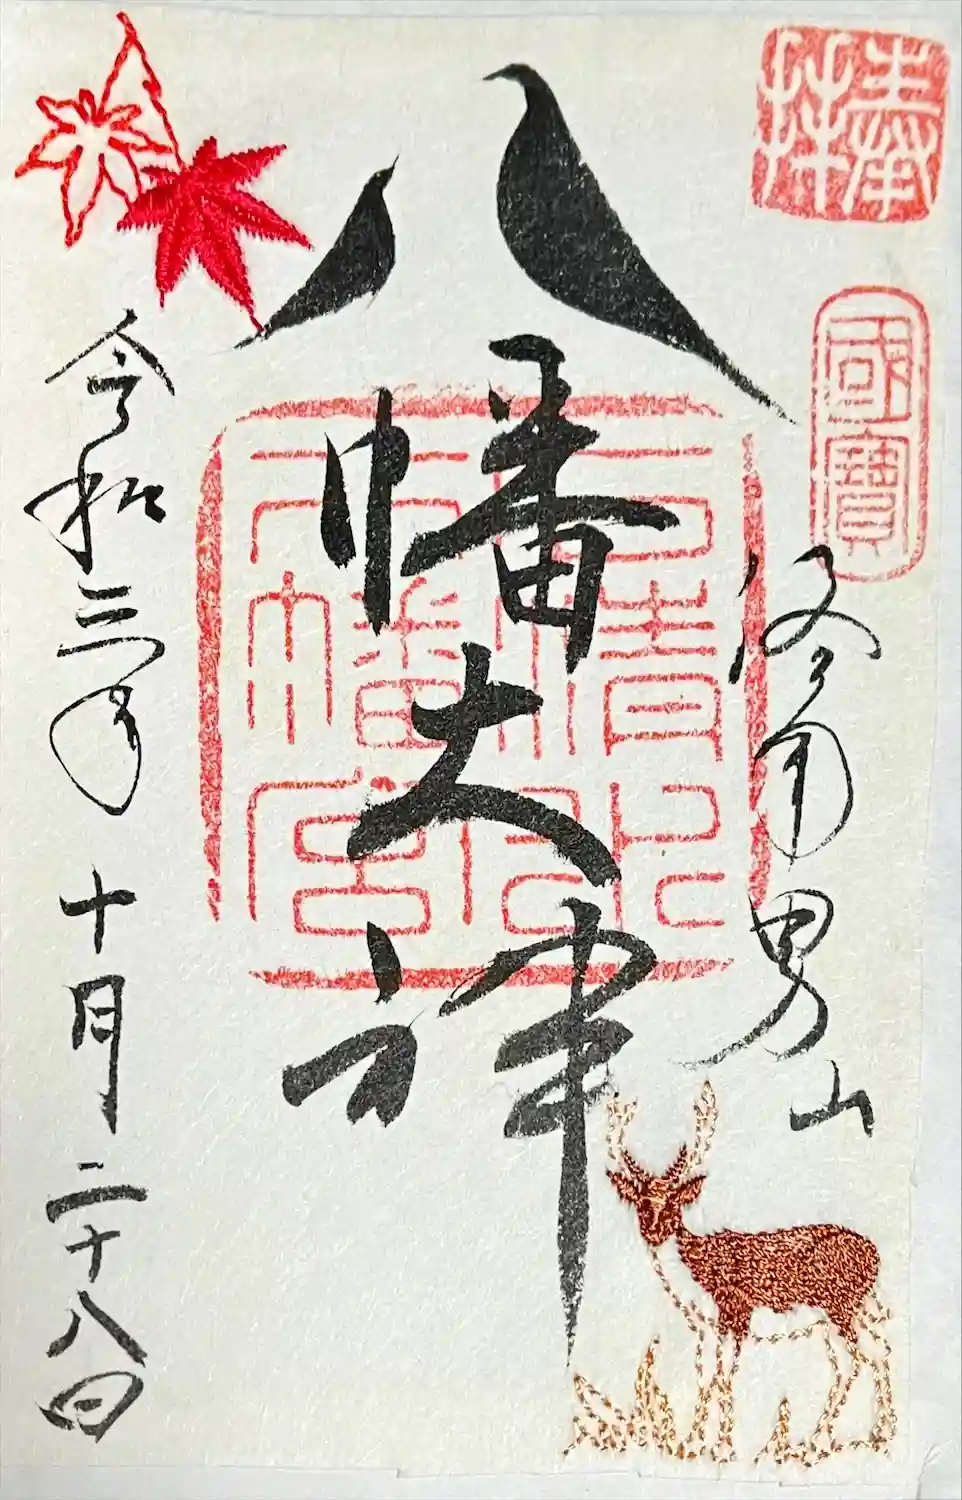 奉拜
國寶
男山
八幡大神
石清水
八幡宮
令和三年十月二十八日